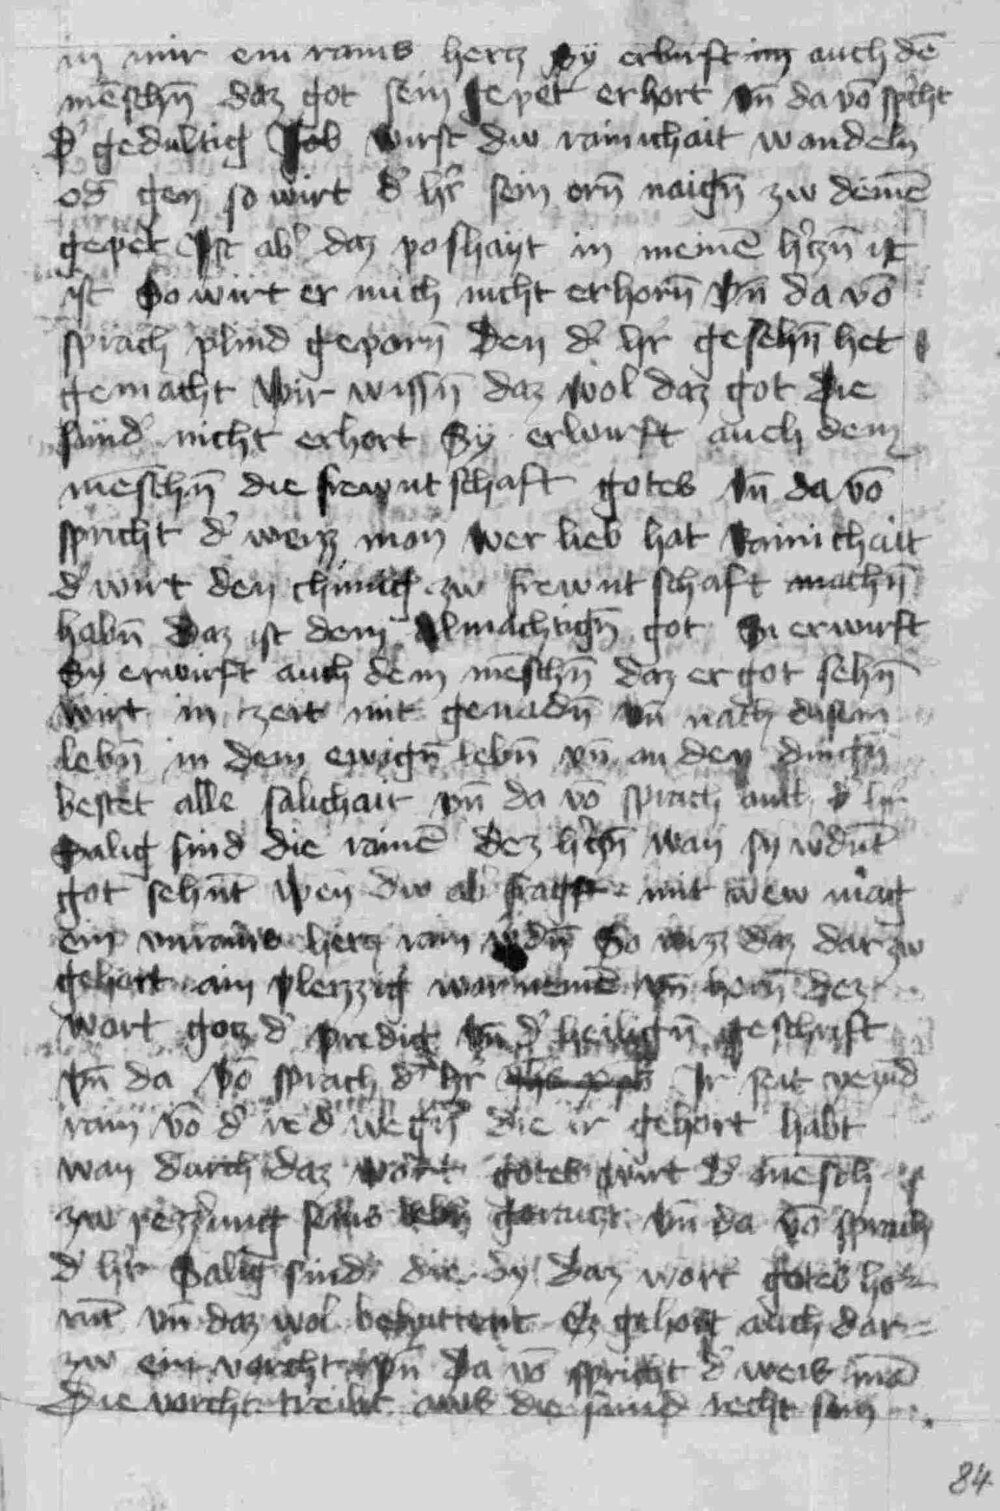 in mir ein rains hertz Sy erburft im auch dē
mēschn̄ daz got sein gepet erhort vn̄ da vō spricht
d' gedultig Job wirst dw rainichait wandeln
od' gen so wirt d' h'r sein orn̄ naign̄ zw deinē
gepet Ist ab' daz poshayt in meinē h'czn̄ ist
ist So wirt er mich nicht erhorn̄ vn̄ da vō
sprach plind geporn̄ Den d' h'r gesehn̄ het
gemacht wir wissn̄ daz wol daz got die
sünd' nicht erhort Sy erwirft auch dem
mēschn̄ die frewntschaft gotes vn̄ da vō
spricht d' weyz man wer lieb hat Rainichait
d' wirt den chünig zw frewntschaft machn̄
habn̄ Daz ist dem Almachtign̄ got Si erwirft
Sy erwirft auch dem mēschn̄ daz er got sehn̄
wirt in zeit mit genadn̄ vn̄ nach disem
lebn̄ in dem ewign̄ lebn̄ vn̄ an den dingn̄
bestet alle salichait vn̄ da vō sprach d' h'r
Salig sind die rainē dez h'czn̄ wan sy w'dnt
got sehnt Wen dw ab' fragst mit wew mag
ein vnrains hertz rain w'dn̄ So wizz daz dar zw
gehort ain pleizzig war nemē vn̄ horn̄ dez
wort gotz d' predig vn̄ d' heilign̄ geschrift
vn̄ da vō sprach d' h'r Ir seit yeczūd
rain vō d' red wegn̄ die ir gehort habt
wan durch daz wort gotes wirt d' mēsch
zw pezz'ung seins lebn̄ geraiczt vn̄ da vō sprach
d' h'r Salig sind die dy daz wort gotes ho=
rnt vn̄ daz wol behuttent Ez gehort auch dar=
zw ein vorcht vn̄ da vō spricht d' weis mā
Die vorcht treibt aws die sund recht sam
84